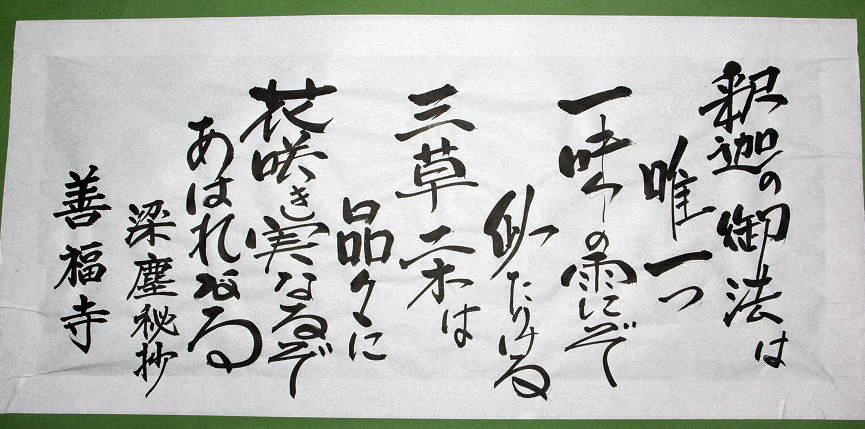 釈迦の御法は
唯一つ
一味の雨にぞ
似たりける
三草二木は
品々に
花咲き実なるぞ
あはれなる
梁塵秘抄
善福寺